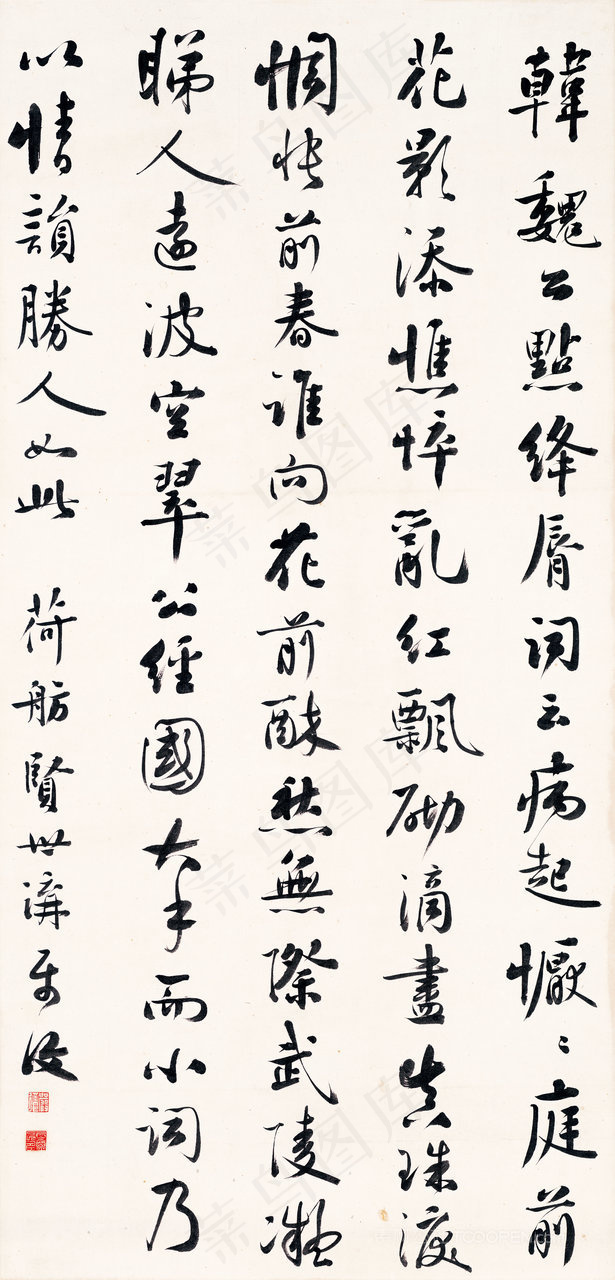 韓魏公點絳脣詞云病起懨〻庭前
花影添憔悴亂紅飄砌滴盡真珠淚
惆悵前春誰向花前醉愁無際武陵凝
睇人遠波空翠公經國大手而小詞乃
以情韻勝人如此 荷舫賢世講屬
菜鸟图库